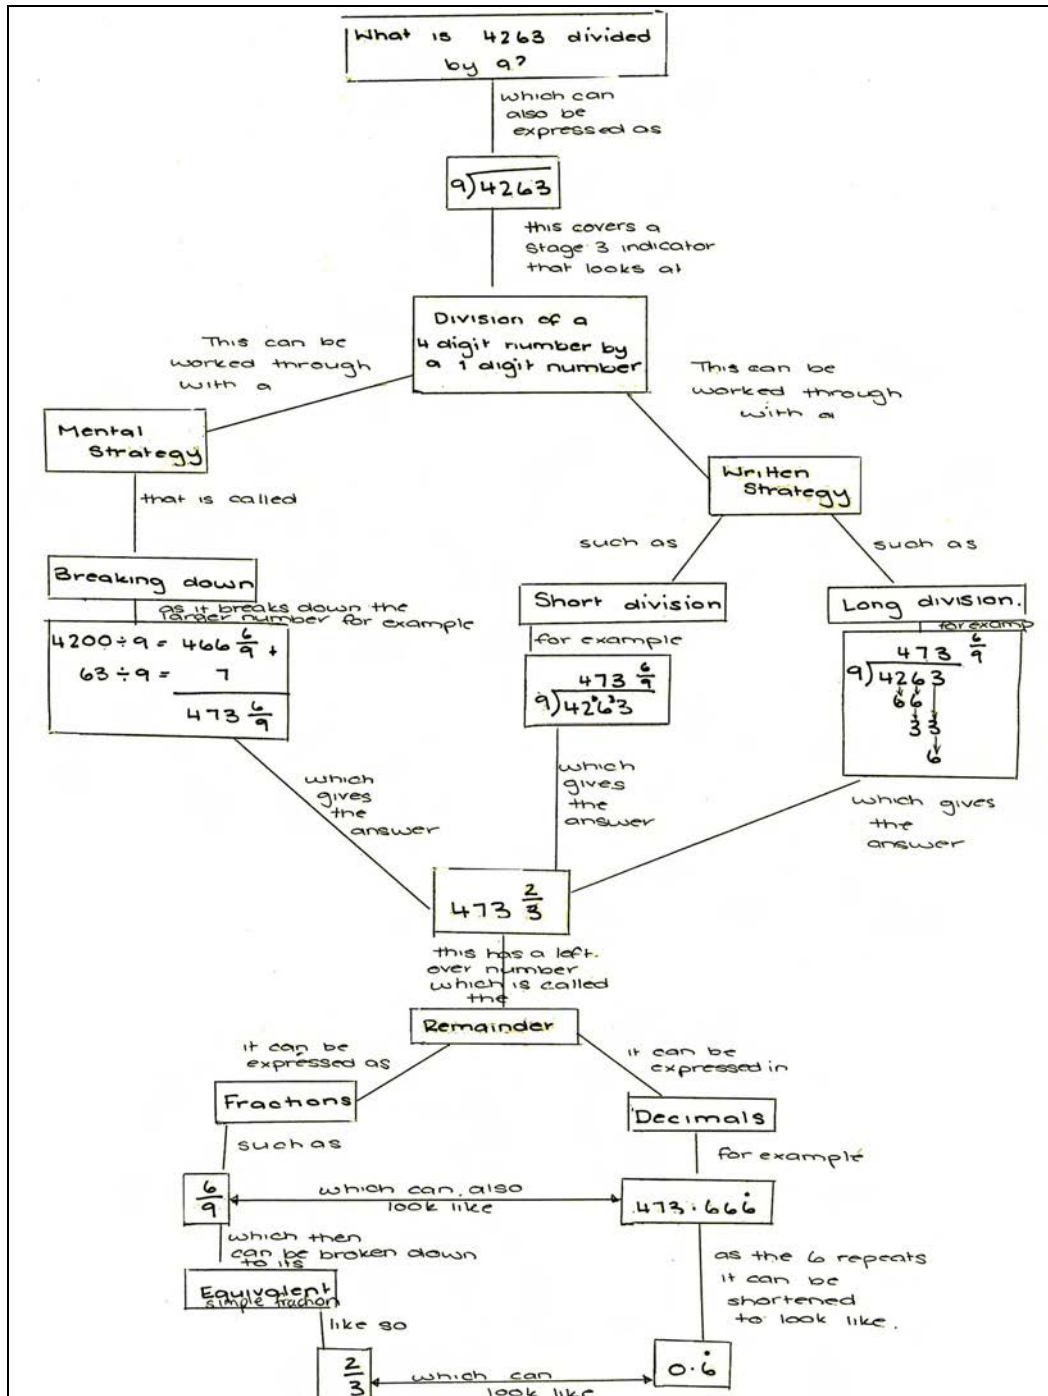 What is 4263 divided
by 9?
which can
also be
expressed as
9)4263
this covers a
Stage 3 indicator
that looks at
Division of a
4 digit number by
a 1 digit number
This can be
worked through
with a
Mental
Strategy
that is called
Breaking down
as it breaks down the
larger number for example
4200÷9 = 466 6/9 +
63÷9 = 7
473 6/9
This can be
worked through
with a
Written
Strategy
such as
Short division
for example
473 6/9
9)42⁶6³3
such as
Long division.
for examp
473 6/9
9)4263
66
33
6
which
gives
the
answer
which
gives
the
answer
which gives
the
answer
473 2/3
this has a left.
over number
which is called
the
Remainder
it can be
expressed as
Fractions
such as
6/9
which can also
look like
which then
can be broken down
to its
Equivalent
simple fraction
like so
2/3
which can
look like
it can be
expressed in
Decimals
for example
473.666̇
as the 6 repeats
it can be
shortened
to look like.
0.6̇